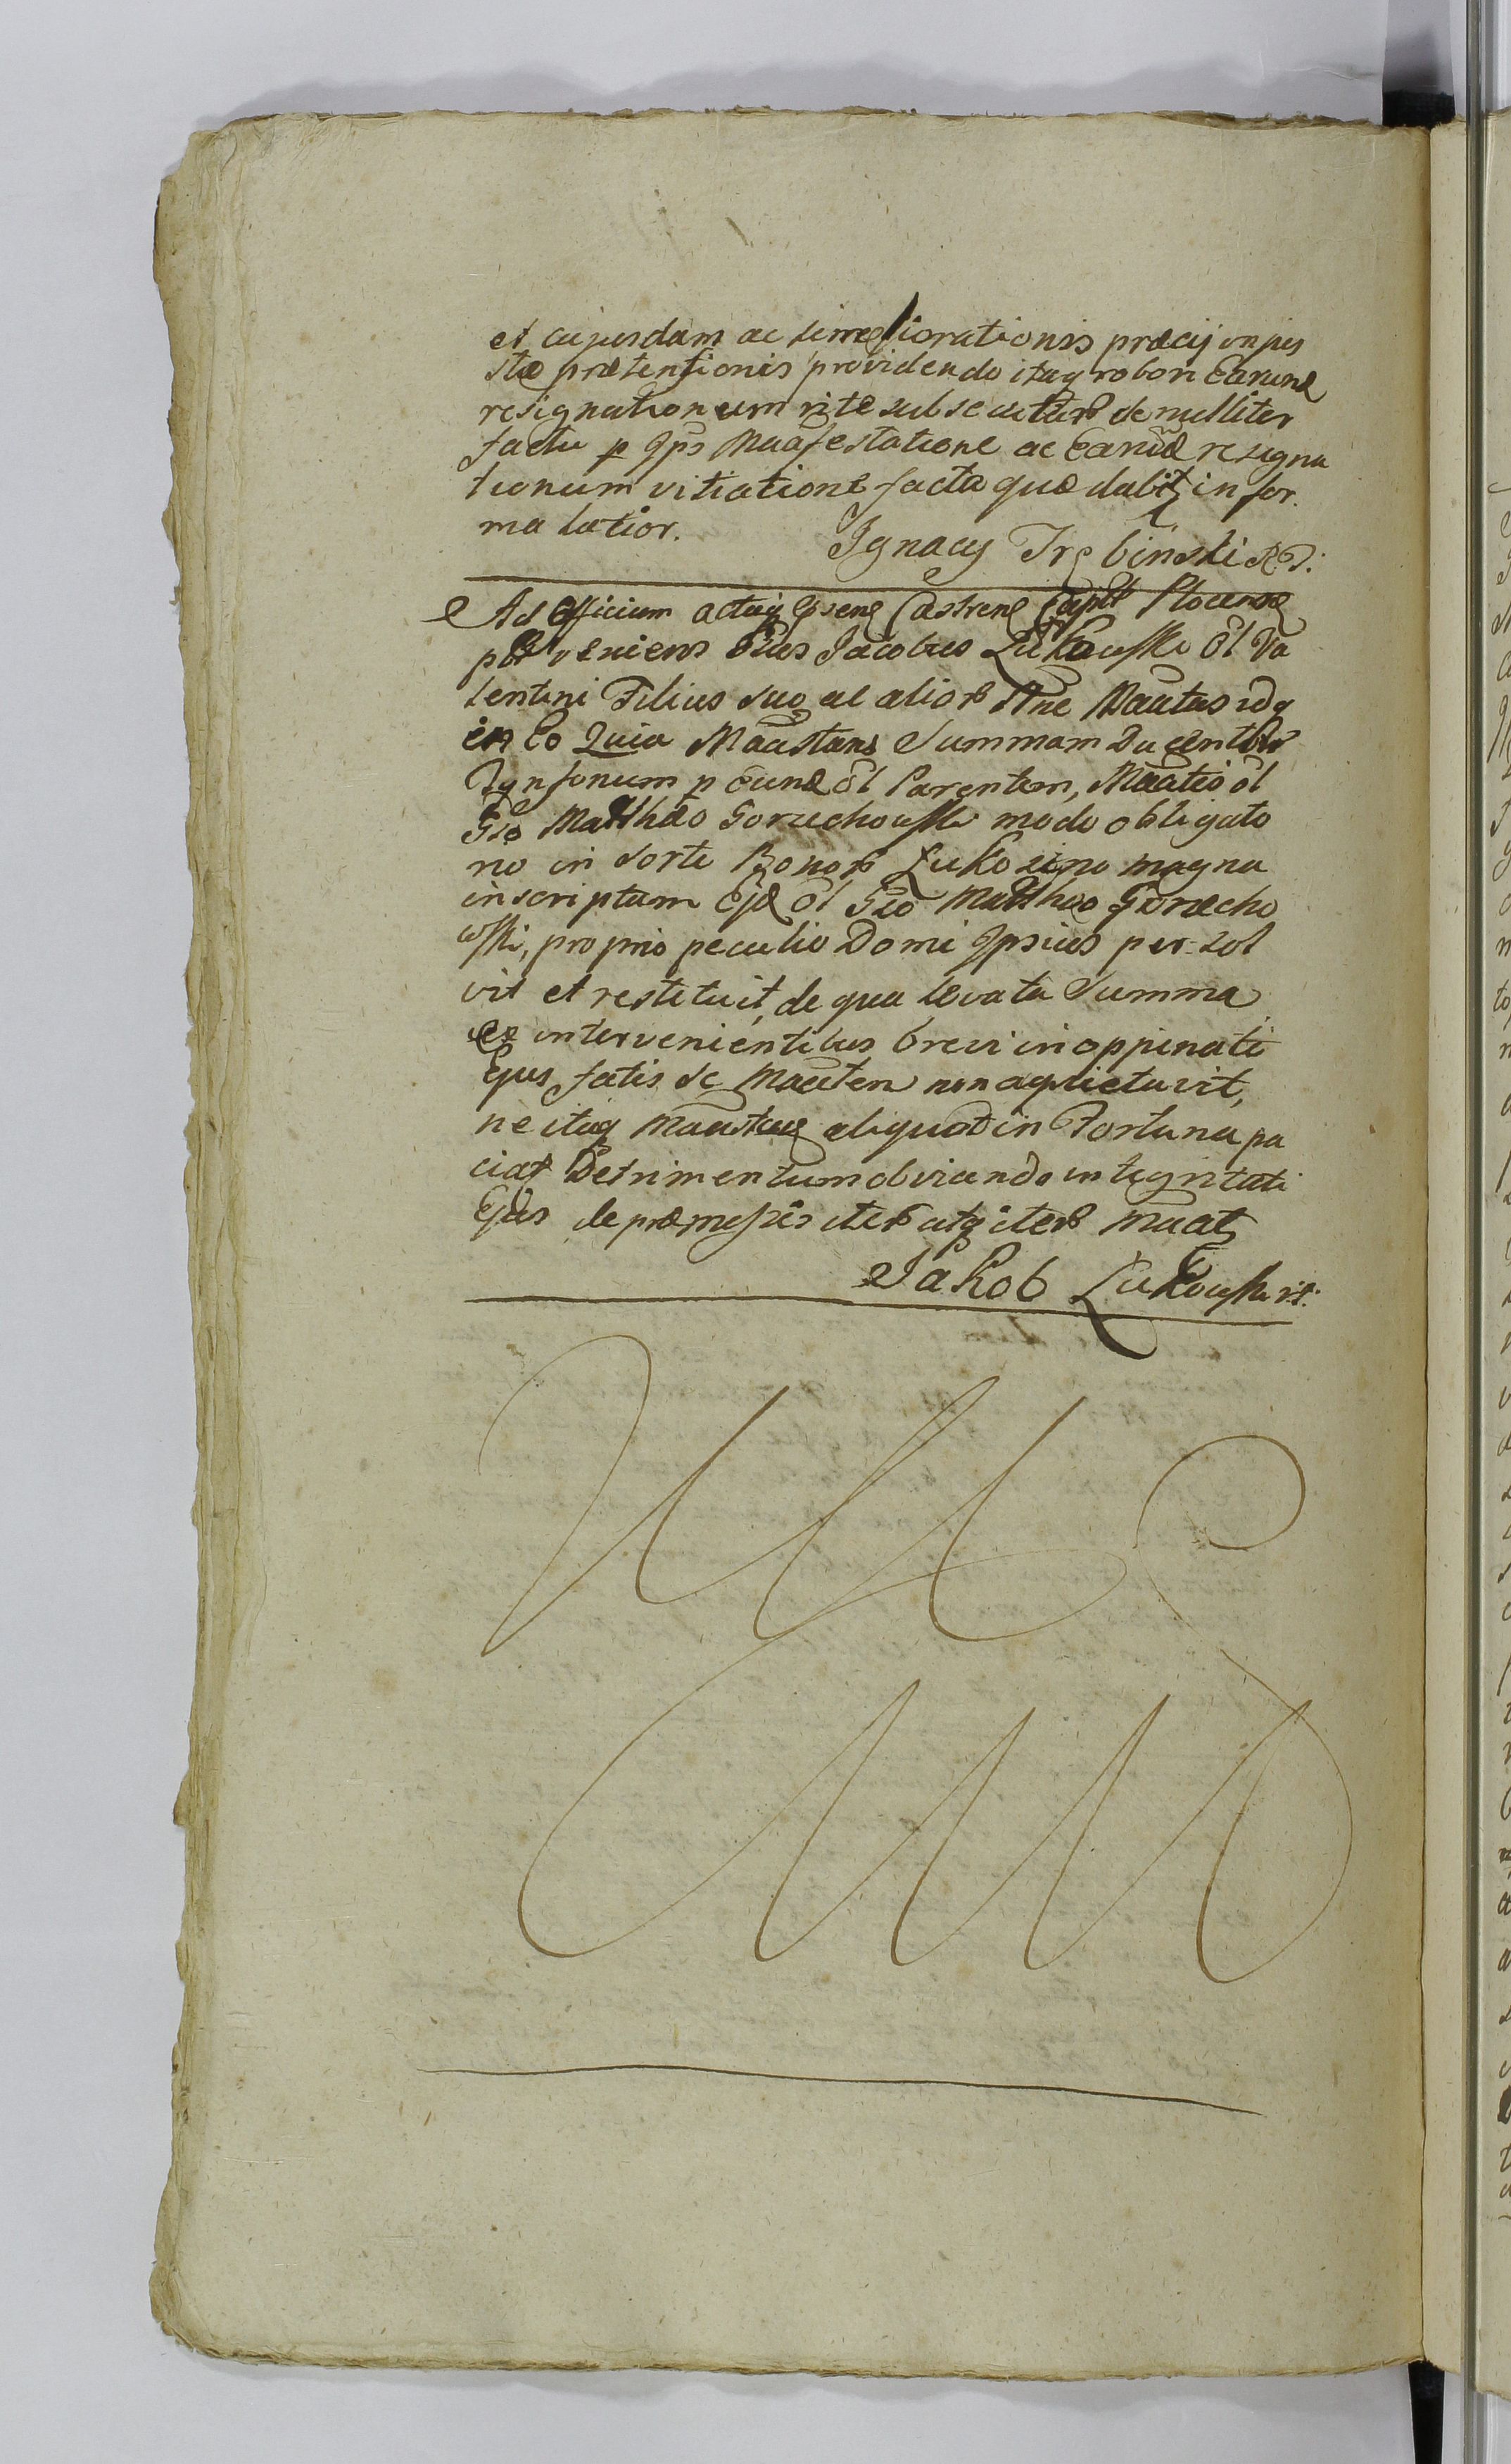 et cujusdam ac semeliorationis præcij injus
stæ prætensionis providendo itaq robori Earund
resignationeum rite subsecutarb de nulliter
factu p Ips Maafestatione ac Earud resigna
tionum vitiatione facta quæ dabit in for.
ma latior.
Ignacy Trębinski
Ad Officium actaq Castren Capit Plocense
veniens Jacobus Łukowski ol Va
lentini Filius suo ac aliorb
in Eo Quia Maastans Summam Ducentor
Tynfonum p Eund ol Parentem, Maatis ol
Gso Matthæo Gorzechowski modo obligato
rio in sorte Bonorb Łukoszyno magna
inscriptam Ejd ol Gso Matthæo Gorzecho
wski, proprio peculio Domi Ipsius per=sol
vit et restituit, de qua levata Summa
ex intervenientibus brevi inoppinatis
qus fatis se Maaten non aquietavit,
ne itaq Maastans aliquod in Fortuna pa
ciat Detrimentum obviando integritati
Ejus de præmissis iterb atq iterb maat
Jakob Łukowski